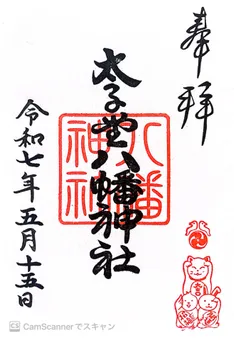 奉拝
太子堂八幡神社
八幡
神社
令和七年五月十五日
CS CamScannerでスキャン